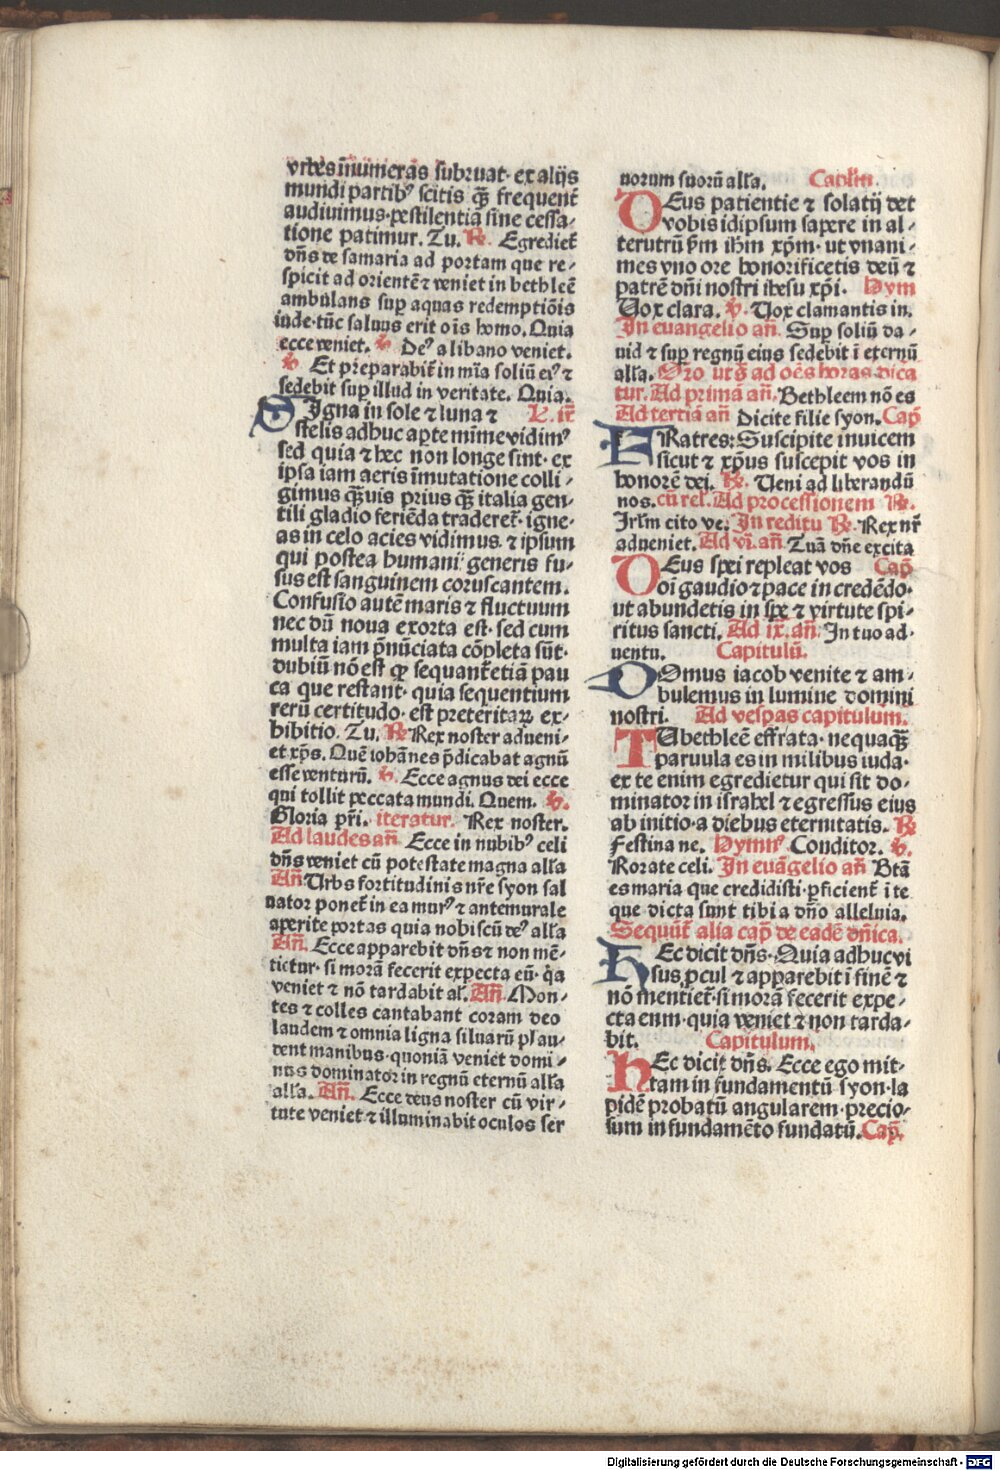 vrbes īnumeras subruat· ex alijs
mundi partibꝰ scitis q̄ꝫ frequent̄
audiuimus·pestilentiā sine cessa⸗
tione patimur. Tu. R̄. Egrediet᷑
dn̄s de samaria ad portam que re⸗
spicit ad orientē ⁊ veniet in bethleē
ambulans sup̱ aquas redemptiōis
iude·tūc saluus erit oīs homo. Quia
ecce veniet. ꝟ. Deꝰ a libano veniet.
ꝟ. Et preparabit᷑ in mīa soliū eiꝰ ⁊
sedebit sup̱ illud in veritate. Quia.
SIgna in sole ⁊ luna ⁊ L. iī
stellis adhuc ap̱te mīme vidimꝰ
sed quia ⁊ hec non longe sint· ex
ipsa iam aeris īmutatione colli⸗
gimus q̄ꝫuis prius q̄ꝫ italia gen⸗
tili gladio feriēda traderet᷑· igne⸗
as in celo acies vidimus· ⁊ ipsum
qui postea humani generis fu⸗
sus est sanguinem coruscantem.
Confusio autē maris ⁊ fluctuum
nec dū noua exorta est· sed cum
multa iam p̄nūciata cōpleta sūt·
dubiū nō est qꝫ sequant᷑ etiā pau
ca que restant· quia sequentium
rerū certitudo· est preteritaꝝ ex⸗
hibitio. Tu. R̄. Rex noster adueni⸗
et xp̄s. Quē iohānes p̄dicabat agnū
esse venturū. ꝟ. Ecce agnus dei ecce
qui tollit peccata mundi. Quem. ꝟ.
Gloria pr̄i. iteratur. Rex noster.
Ad laudes añ. Ecce in nubibꝰ celi
dn̄s veniet cū potestate magna all'a
Añ. Vrbs fortitudinis nr̄e syon sal
uator ponet᷑ in ea murꝰ ⁊ antemurale
aperite portas quia nobiscū deꝰ all'a
Añ. Ecce apparebit dn̄s ⁊ non mē⸗
tietur· si morā fecerit expecta eū· q̇a
veniet ⁊ nō tardabit al'. Añ. Mon⸗
tes ⁊ colles cantabant coram deo
laudem ⁊ omnia ligna siluarū plau⸗
dent manibus·quoniā veniet domi⸗
nus dominator in regnū eternū all'a
all'a. Añ. Ecce deus noster cū vir⸗
tute veniet ⁊ illuminabit oculos ser
uorum suorū all'a. Capl'm.
DEus patientie ⁊ solatij det
vobis idipsum sapere in al⸗
terutrū ẜm ih̄m xp̄m· ut vnani⸗
mes vno ore honorificetis deū ⁊
patrē dn̄i nostri ihesu xp̄i. Hym
Vox clara. ꝟ. Vox clamantis in.
In euangelio añ. Sup̱ soliū da⸗
uid ⁊ sup̱ regnū eius sedebit ī eternū
all'a. Oro ut s̄ ad oēs horas dica
tur. Ad primā añ. Bethleem nō es
Ad tertiā añ Dicite filie syon. Cap̄
FRatres: Suscipite inuicem
sicut ⁊ xp̄us suscepit vos in
honorē dei. R̄. Veni ad liberandū
nos. cū rel'. Ad processionem R̄.
Irl'm cito ve. In reditu R̄. Rex nr̄
adueniet. Ad vi. añ. Tuā dn̄e excita
DEus spei repleat vos Cap̄
oī gaudio ⁊ pace in credēdo·
ut abundetis in spe ⁊ virtute spi⸗
ritus sancti. Ad ix. añ. In tuo ad⸗
uentu. Capitulū.
DOmus iacob venite ⁊ am⸗
bulemus in lumine domini
nostri. Ad vesp̱as capitulum.
TU bethleē effrata· nequaq̄ꝫ
paruula es in milibus iuda·
ex te enim egredietur qui sit do⸗
minator in israhel ⁊ egressus eius
ab initio·a diebus eternitatis. R̄
Festina ne. Hymnꝰ. Conditor. ꝟ.
Rorate celi. In euāgelio añ Btā
es maria que credidisti·ꝑficient᷑ ī te
que dicta sunt tibi a dn̄o alleluia.
Sequūt᷑ alia cap̄ de eadē dn̄ica.
HEc dicit dn̄s· Quia adhuc vi
sus ꝓcul ⁊ apparebit ī finē ⁊
nō mentiet᷑·si morā fecerit expe⸗
cta eum·quia veniet ⁊ non tarda⸗
bit. Capitulum.
HEc dicit dn̄s. Ecce ego mit⸗
tam in fundamentū syon·la
pidē probatū angularem·precio⸗
sum in fundamēto fundatū. Cap̄.
Digitalisierung gefördert durch die Deutsche Forschungsgemeinschaft - DFG